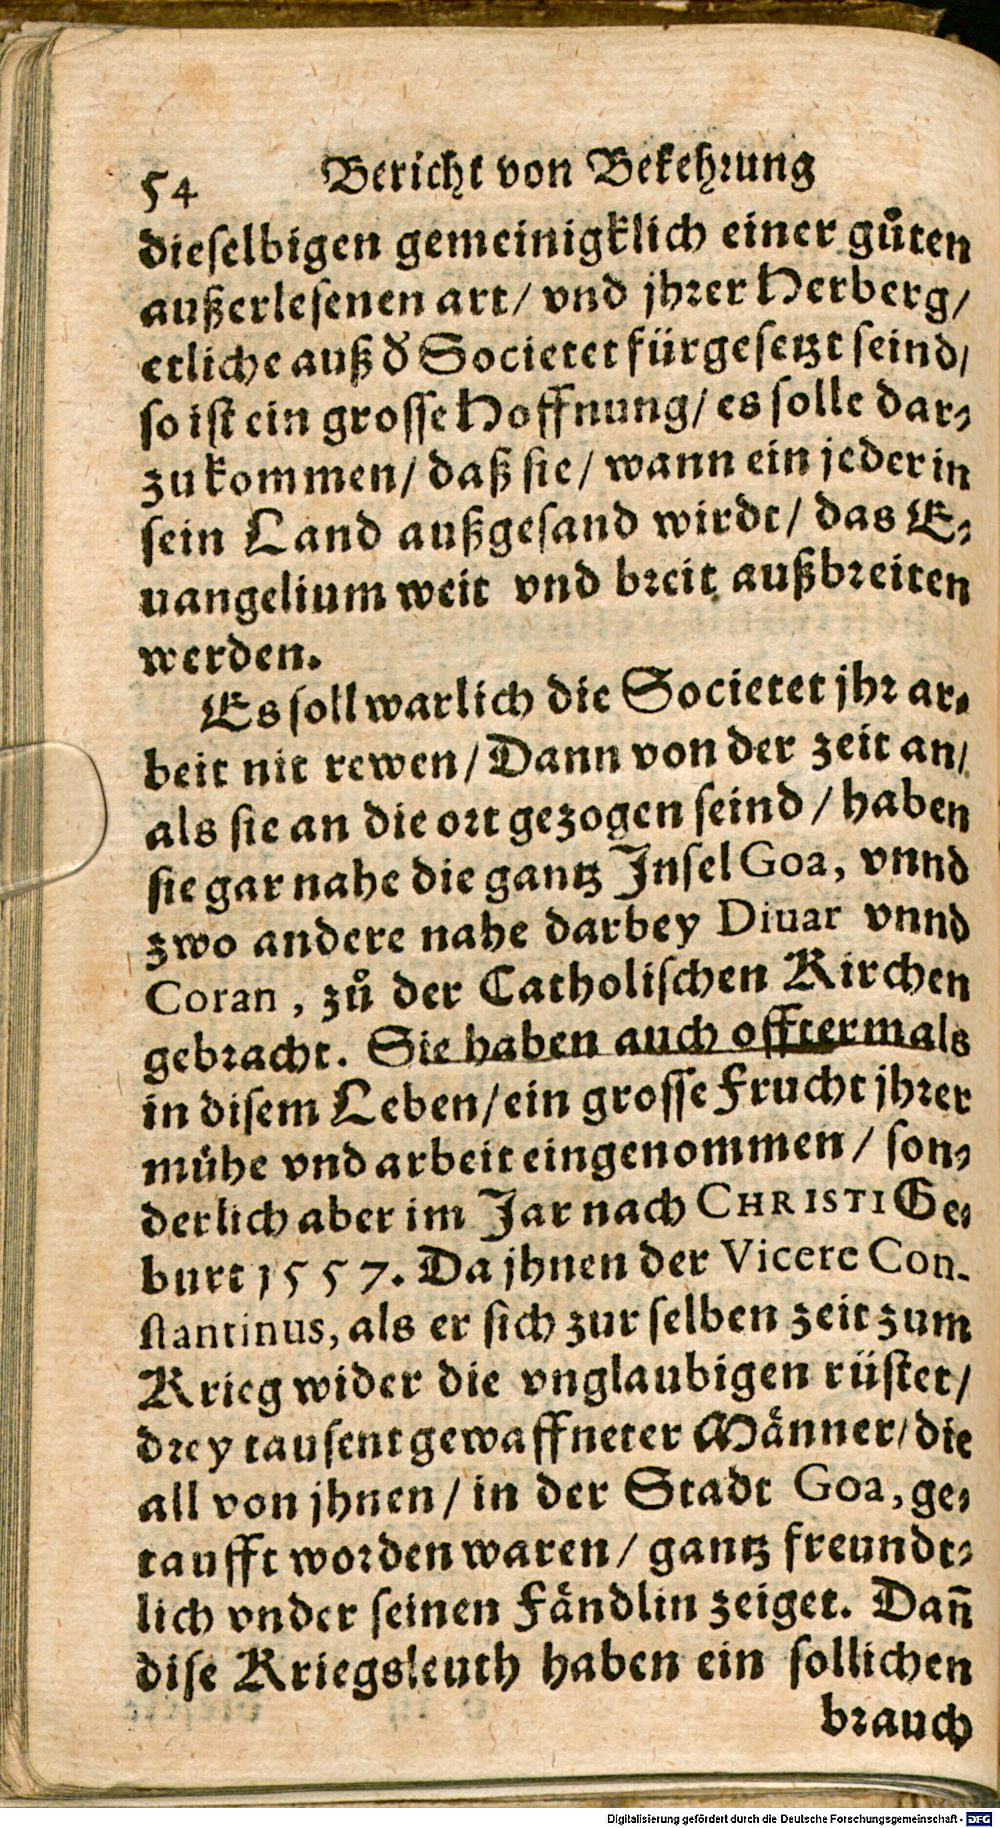 54 Bericht von Bekehrung
dieselbigen gemeinigklich einer gůten
außerlesenen art/ vnd jhrer Herberg/
etliche auß d̕ Societet fürgesetzt seind/
so ist ein grosse Hoffnung/ es solle dar⸗
zu kommen/ daß sie/ wann ein jeder in
sein Land außgesand wirdt/ das E⸗
uangelium weit vnd breit außbreiten
werden.
Es soll warlich die Societet jhr ar⸗
beit nit rewen/ Dann von der zeit an/
als sie an die ort gezogen seind/ haben
sie gar nahe die gantz Insel Goa, vnnd
zwo andere nahe darbey Diuar vnnd
Coran, zů der Catholischen Kirchen
gebracht. Sie haben auch offtermals
in disem Leben/ ein grosse Frucht jhrer
mühe vnd arbeit eingenommen/ son⸗
derlich aber im Jar nach CHRISTI Ge⸗
burt 1557. Da jhnen der Vicere Con-
stantinus, als er sich zur selben zeit zum
Krieg wider die vnglaubigen rüstet/
drey tausent gewaffneter Männer/ die
all von jhnen/ in der Stadt Goa, ge⸗
taufft worden waren/ gantz freundt⸗
lich vnder seinen Fändlin zeiget. Dañ
dise Kriegsleuth haben ein sollichen
brauch
Digitalisierung gefördert durch die Deutsche Forschungsgemeinschaft - DFG